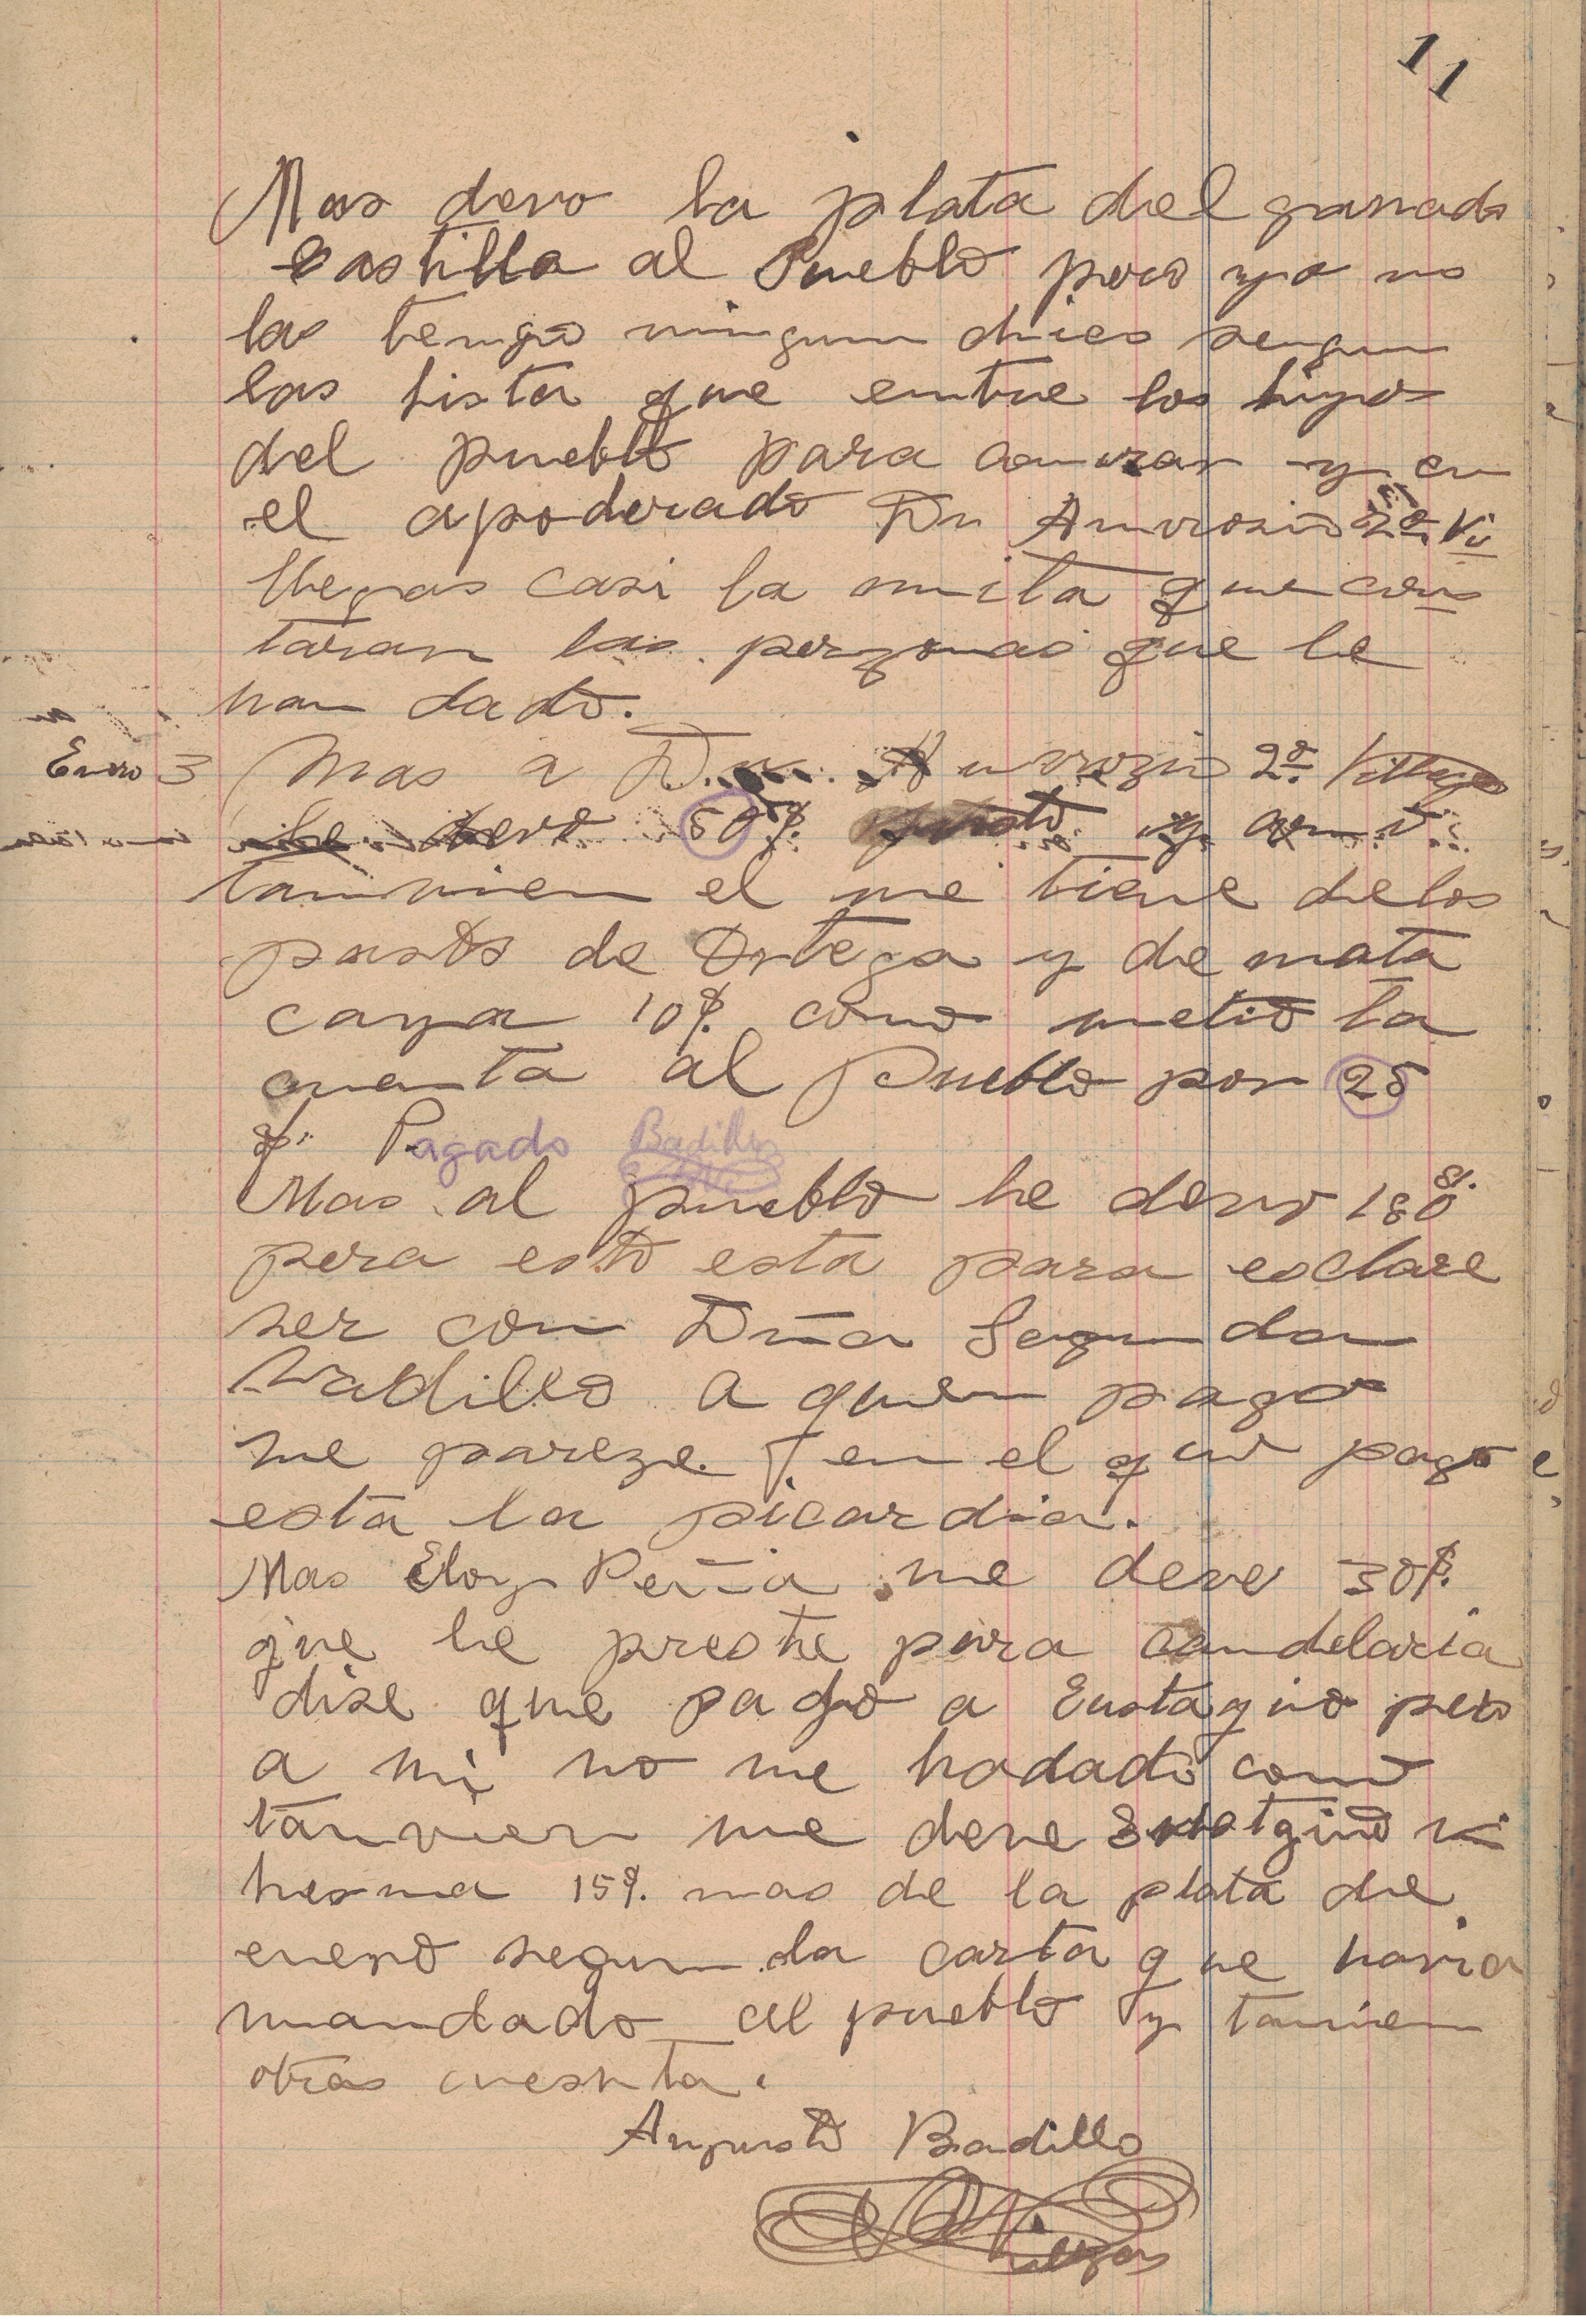 11
Mas devo la plata del ganado
Castilla al Pueblo pero ya no
las tengo ningun chico segun
las lista que entre los hijos
del pueblo para comrar y en
el apoderado Dn Amvrosio 2º Vi
llegas casi la mita que cons
taran las perzonas que le
han dado.
Enero 3 Mas a Dn. Amvrozio 2º. Villegas
le devo 50 $. y como
tamvien el me tiene de los
pasto de Ortega y de mata
caya 10 $. como metio la
cuenta al Pueblo por 25
$. Pagado Badillo
Mas al pueblo he devo 180 $.
pera esto esta para esclare
ser con Dña Segunda
Vadillo a quien pago
me pareze. en el que pago
esta la picardia.
Mas Eloy Peña me deve 30 $.
que le preste para candelaria
dise que pago a Eustaquio pero
a mi no me hadado como
tanvien me deve
15 $. mas de la plata de
enero segun la carta que havia
mandado al pueblo y tamien
otras cuesnta.
Augusto Badillo
Villegas